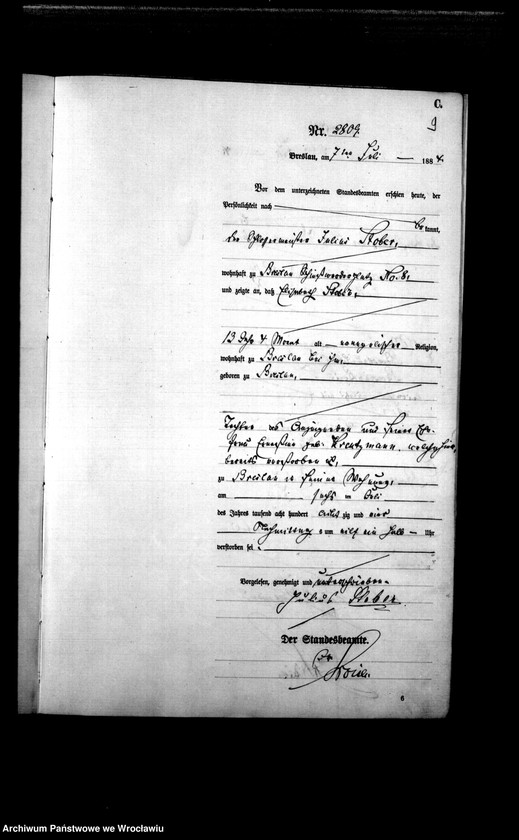 C.
9
Nr. 2809.
Breslau, am 7ten Juli 1884.
Vor dem unterzeichneten Standesbeamten erschien heute, der
Persönlichkeit nach bekannt,
der Schlossermeister Julius Stober,
wohnhaft zu Breslau Schießwerderplatz No. 8,
und zeigte an, daß Elisabeth Stober,
13 Jahr 4 Monat alt evangelischer Religion,
wohnhaft zu Breslau bei ihm,
geboren zu Breslau,
Tochter des Anzeigenden und seiner Ehe-
frau Ernestine geb. Kreutzmann, welche
bereits verstorben
zu Breslau in seiner Wohnung,
am sechs ten Juli
des Jahres tausend acht hundert achtzig und vier
Nachmittags um elf ein halb Uhr
verstorben sei.
Vorgelesen, genehmigt und unterschrieben
Julius Stober
Der Standesbeamte.
6
Archiwum Państwowe we Wrocławiu